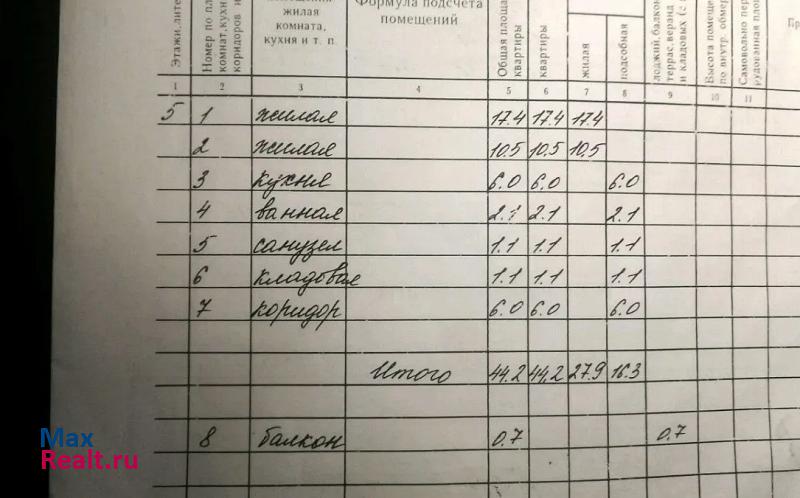 жилая
комната,
кухня и т. п.
Формула подсчета
помещений
Этажи,
Номер по
комнат,
коридоров
Общая
квартиры
квартиры
жилая
подсобная
и кладовых (с
Высота
по внутр.
Самовольно
1 2 3 4 5 6 7 8 9 10 11
5 1 жилая 17.4 17.4 17.4
2 жилая 10.5 10.5 10.5
3 кухня 6.0 6.0 6.0
4 ванная 2.1 2.1 2.1
5 санузел 1.1 1.1 1.1
6 кладовая 1.1 1.1 1.1
7 коридор 6.0 6.0 6.0
Итого 44.2 44.2 27.9 16.3
8 балкон 0.7 0.7
Max
Realt.ru